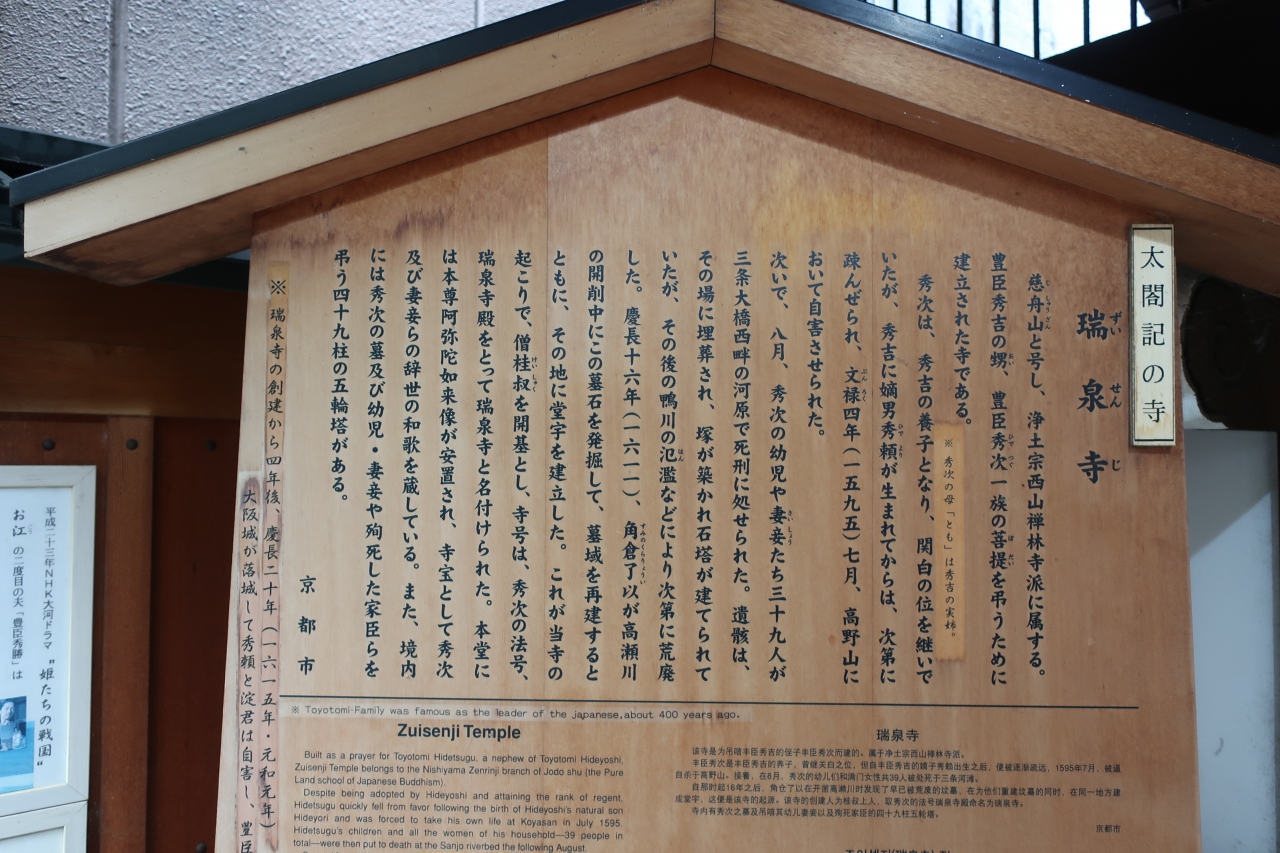 太閤記の寺
瑞泉寺
ずいせんじ
慈舟山と号し、浄土宗西山禅林寺派に属する。
豊臣秀吉の甥、豊臣秀次一族の菩提を弔うために
建立された寺である。
※秀次の母「とも」は秀吉の実姉。
秀次は、秀吉の養子となり、関白の位を継いで
いたが、秀吉に嫡男秀頼が生まれてからは、次第に
疎んぜられ、文禄四年(一五九五)七月、高野山に
おいて自害させられた。
次いで、八月、秀次の幼児や妻妾たち三十九人が
三条大橋西畔の河原で死刑に処せられた。遺骸は、
その場に埋葬され、塚が築かれ石塔が建てられて
いたが、その後の鴨川の氾濫などにより次第に荒廃
した。慶長十六年(一六一一)、角倉了以が高瀬川
の開削中にこの墓石を発掘して、墓域を再建すると
ともに、その地に堂宇を建立した。これが当寺の
起こりで、僧桂叔を開基とし、寺号は、秀次の法号、
瑞泉寺殿をとって瑞泉寺と名付けられた。本堂に
は本尊阿弥陀如来像が安置され、寺宝として秀次
及び妻妾らの辞世の和歌を蔵している。また、境内
には秀次の墓及び幼児・妻妾や殉死した家臣らを
弔う四十九柱の五輪塔がある。
京都市
※瑞泉寺の創建から四年後、慶長二十年(一六一五年・元和元年)
大阪城が落城して秀頼と淀君は自害し、豊臣
※ Toyotomi-Family was famous as the leader of the japanese,about 400 years ago.
Zuisenji Temple
Built as a prayer for Toyotomi Hidetsugu, a nephew of Toyotomi Hideyoshi,
Zuisenji Temple belongs to the Nishiyama Zenrinji branch of Jodo shu (the Pure
Land school of Japanese Buddhism).
Despite being adopted by Hideyoshi and attaining the rank of regent,
Hidetsugu quickly fell from favor following the birth of Hideyoshi's natural son
Hideyori and was forced to take his own life at Koyasan in July 1595.
Hidetsugu's children and all the women of his household—39 people in
total—were then put to death at the Sanjo riverbed the following August.
瑞泉寺
该寺是为吊唁丰臣秀吉的侄子丰臣秀次而建的。属于净土宗西山禅林寺派。
丰臣秀次是丰臣秀吉的养子，曾继关白之位，但自丰臣秀吉的嫡子秀赖出生之后，便被逐渐疏远，1595年7月，被逼
自杀于高野山。接着，在8月，秀次的幼儿们和满门女性共39人被处死于三条河滩。
自那时起16年之后，角仓了以在开凿高濑川时发现了早已被荒废的坟墓，在为他们重建坟墓的同时，在同一地方建
成堂宇，这便是该寺的起源。该寺的创建人为桂叔上人，取秀次的法号瑞泉寺殿命名为瑞泉寺。
寺内有秀次之墓及吊唁其幼儿妻妾以及殉死家臣的四十九柱五轮塔。
京都市
平成二十三年NHK大河ドラマ“姫たちの戦国”
お江の二度目の夫「豊臣秀勝」は